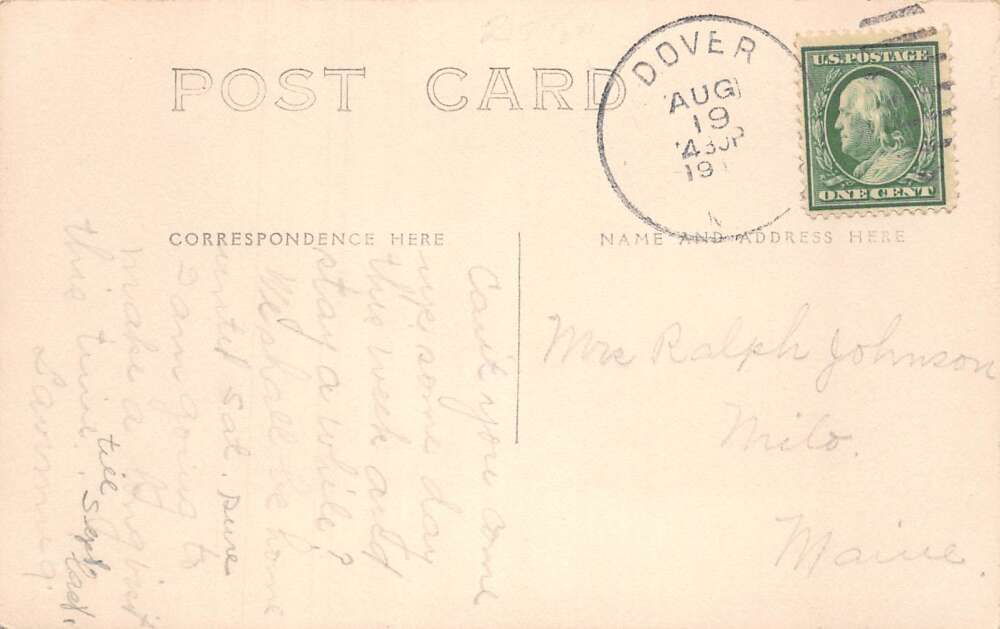 POST CARD
DOVER
AUG
19
430P
191
U.S. POSTAGE
ONE CENT
CORRESPONDENCE HERE
NAME AND ADDRESS HERE
Can't you come
up some day
this week and
stay a while?
We shall be home
until Sat. sure
I am going to
make a long visit
this time. till Sept last.
Mrs Ralph Johnson
Milo.
Maine.